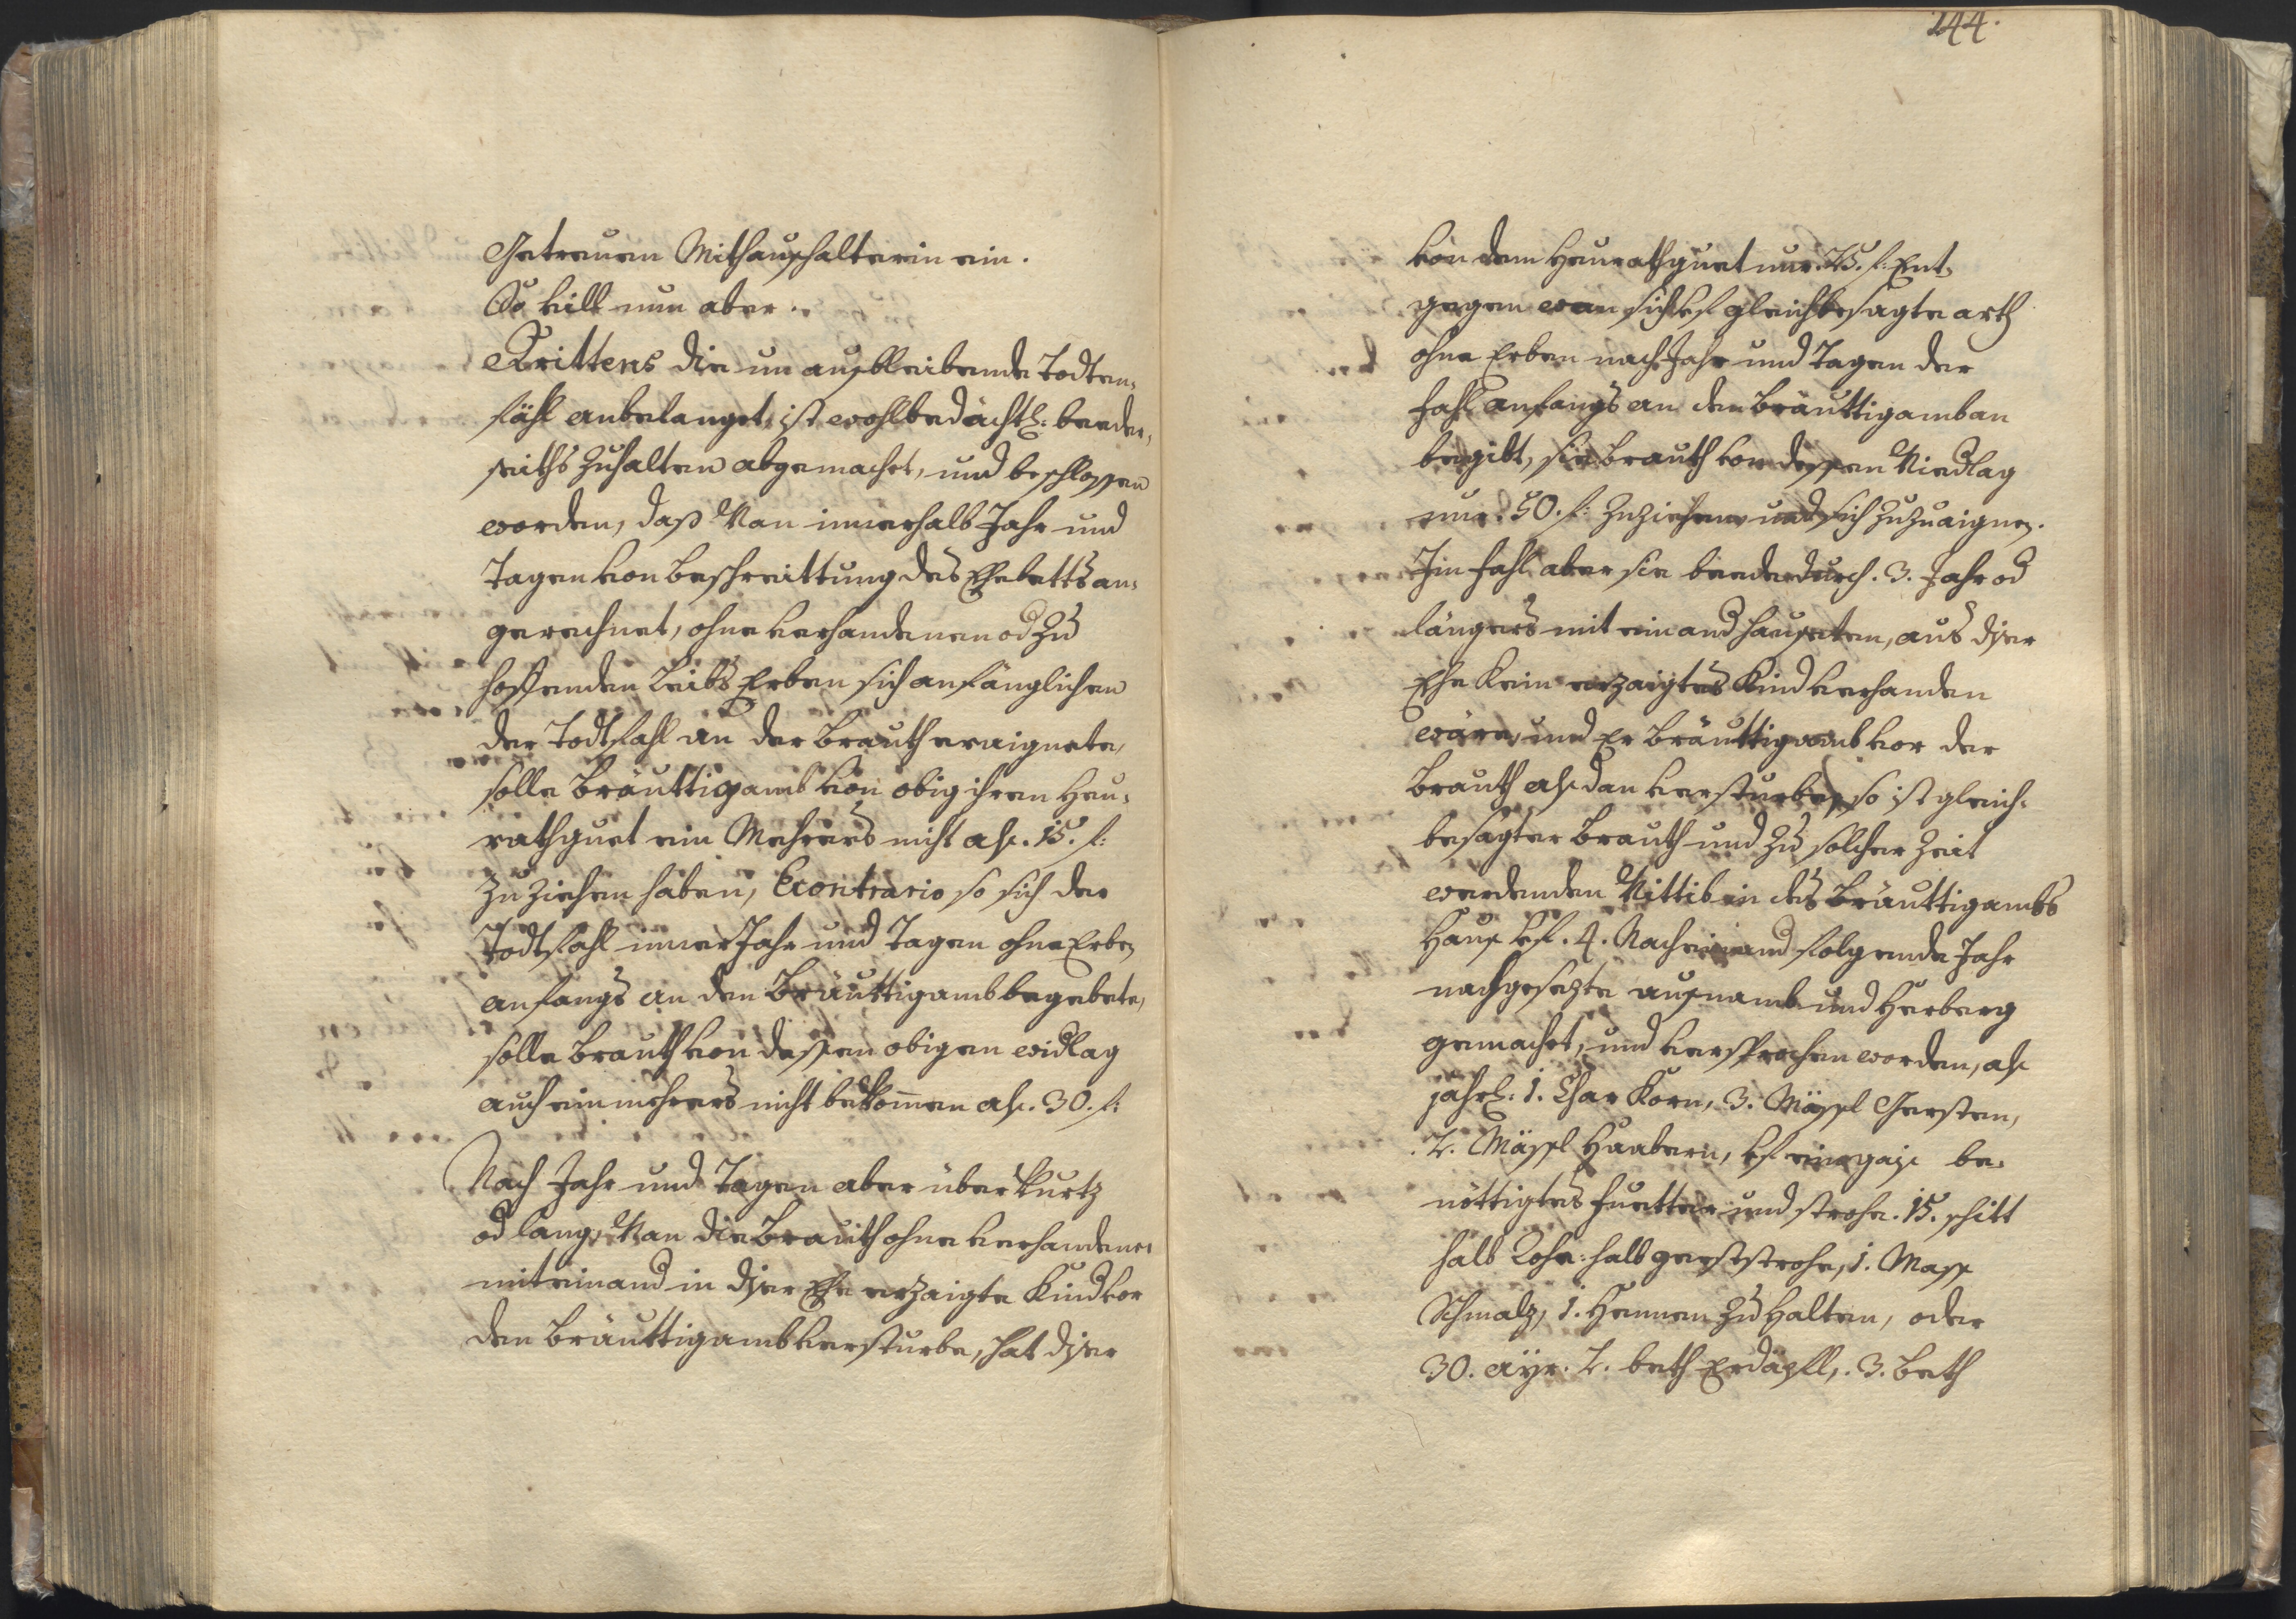 Getreuen Mithaushalterin ein.
So vill nun aber.
Drittens die un ausbleibende Todten-
fähl anbelanget, ist wohlbedächtl: beeder-
seiths zuhalten abgemachet, und beschlossen
worden, daß Wan innerhalb Jahr und
Tagen von beschreittung des Ehebetts an-
gerechnet, ohne verhandenen od zu
hoffenden Leibs Erben sich anfänglichen
der Todtfahl an der brauth eraignete,
solle bräuttigamb von obig ihren Heu-
rathguet ein Mehrers nicht als. 15. f:
zu ziehen haben, Econtrario so sich der
Todtfahl inner Jahr und Tagen ohne Erben
anfangs an den Bräuttigamb begebete,
solle brauth von dessen obigen widlag
auch ein mehrers nicht bekommen als. 30. f:
Nach Jahr und Tagen aber über kurtz
od lang, Wan die Brauth ohne verhandener
miteinand in diser Ehe erzaigte Kind vor
den bräuttigamb versturbe, hat diser
244.
von dem Heurathguet nur. 25. f: Ent-
gegen wan sich uf gleichbesagte arth
ohne Erben nach Jahr und Tagen der
fahl anfangs an den bräuttigamb an
begibt, sie brauth von dessen Widlag
nur. 50. f: zuziehen und sich zuzuaignen.
Im fahl aber sie beede durch. 3. Jahr od
längers mit einand hauseten, aus diser
Ehe Kein erzaigtes Kind verhanden
wäre, und Er bräuttigamb vor der
brauth alsdan versturbe, so ist gleich-
besagter brauth und zu solcher zeit
werdenden Wittib in des Bräuttigambs
Haus uf. 4. Nacheinand folgende Jahr
nachgesezte ausnamb und Herberg
gemachet, und versprochen worden, als
jährl: 1. Char Korn, 3. Mässl Gersten,
2. Mässl Haabern, uf eine gais be-
nöttigtes fuetter und strohe. 15. schitt
halb Rohe: halb gerststrohe, 1. Mass
Schmalz, 1. Hennen zu halten, oder
30. ayr. 2. beth Erdäpfl, 3. beth